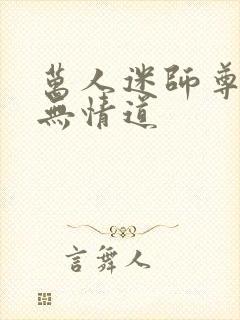 萬人迷師尊
無情道
言舞人